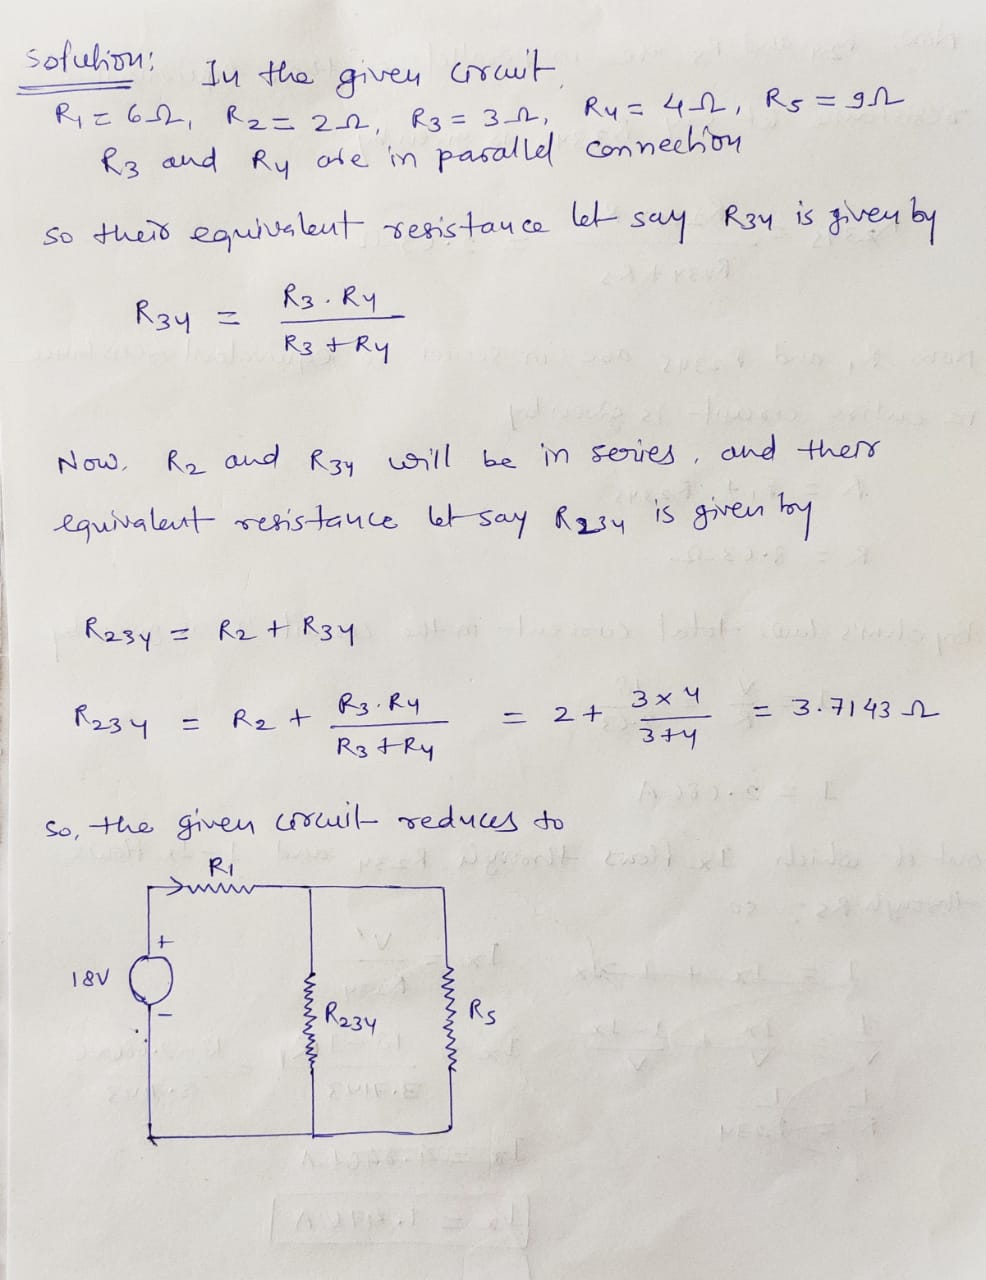 Solution: In the given circuit
R1 = 6Ω, R2 = 2Ω, R3 = 3Ω, R4 = 4Ω, R5 = 9Ω
R3 and R4 are in parallel connection
so their equivalent resistance let say R34 is given by
R34 = R3 . R4 / R3 + R4
Now, R2 and R34 will be in series, and their
equivalent resistance let say R234 is given by
R234 = R2 + R34
R234 = R2 + R3 . R4 / R3 + R4 = 2 + 3 x 4 / 3 + 4 = 3.7143 Ω
So, the given circuit reduces to
R1
+
18V
-
R234
R5